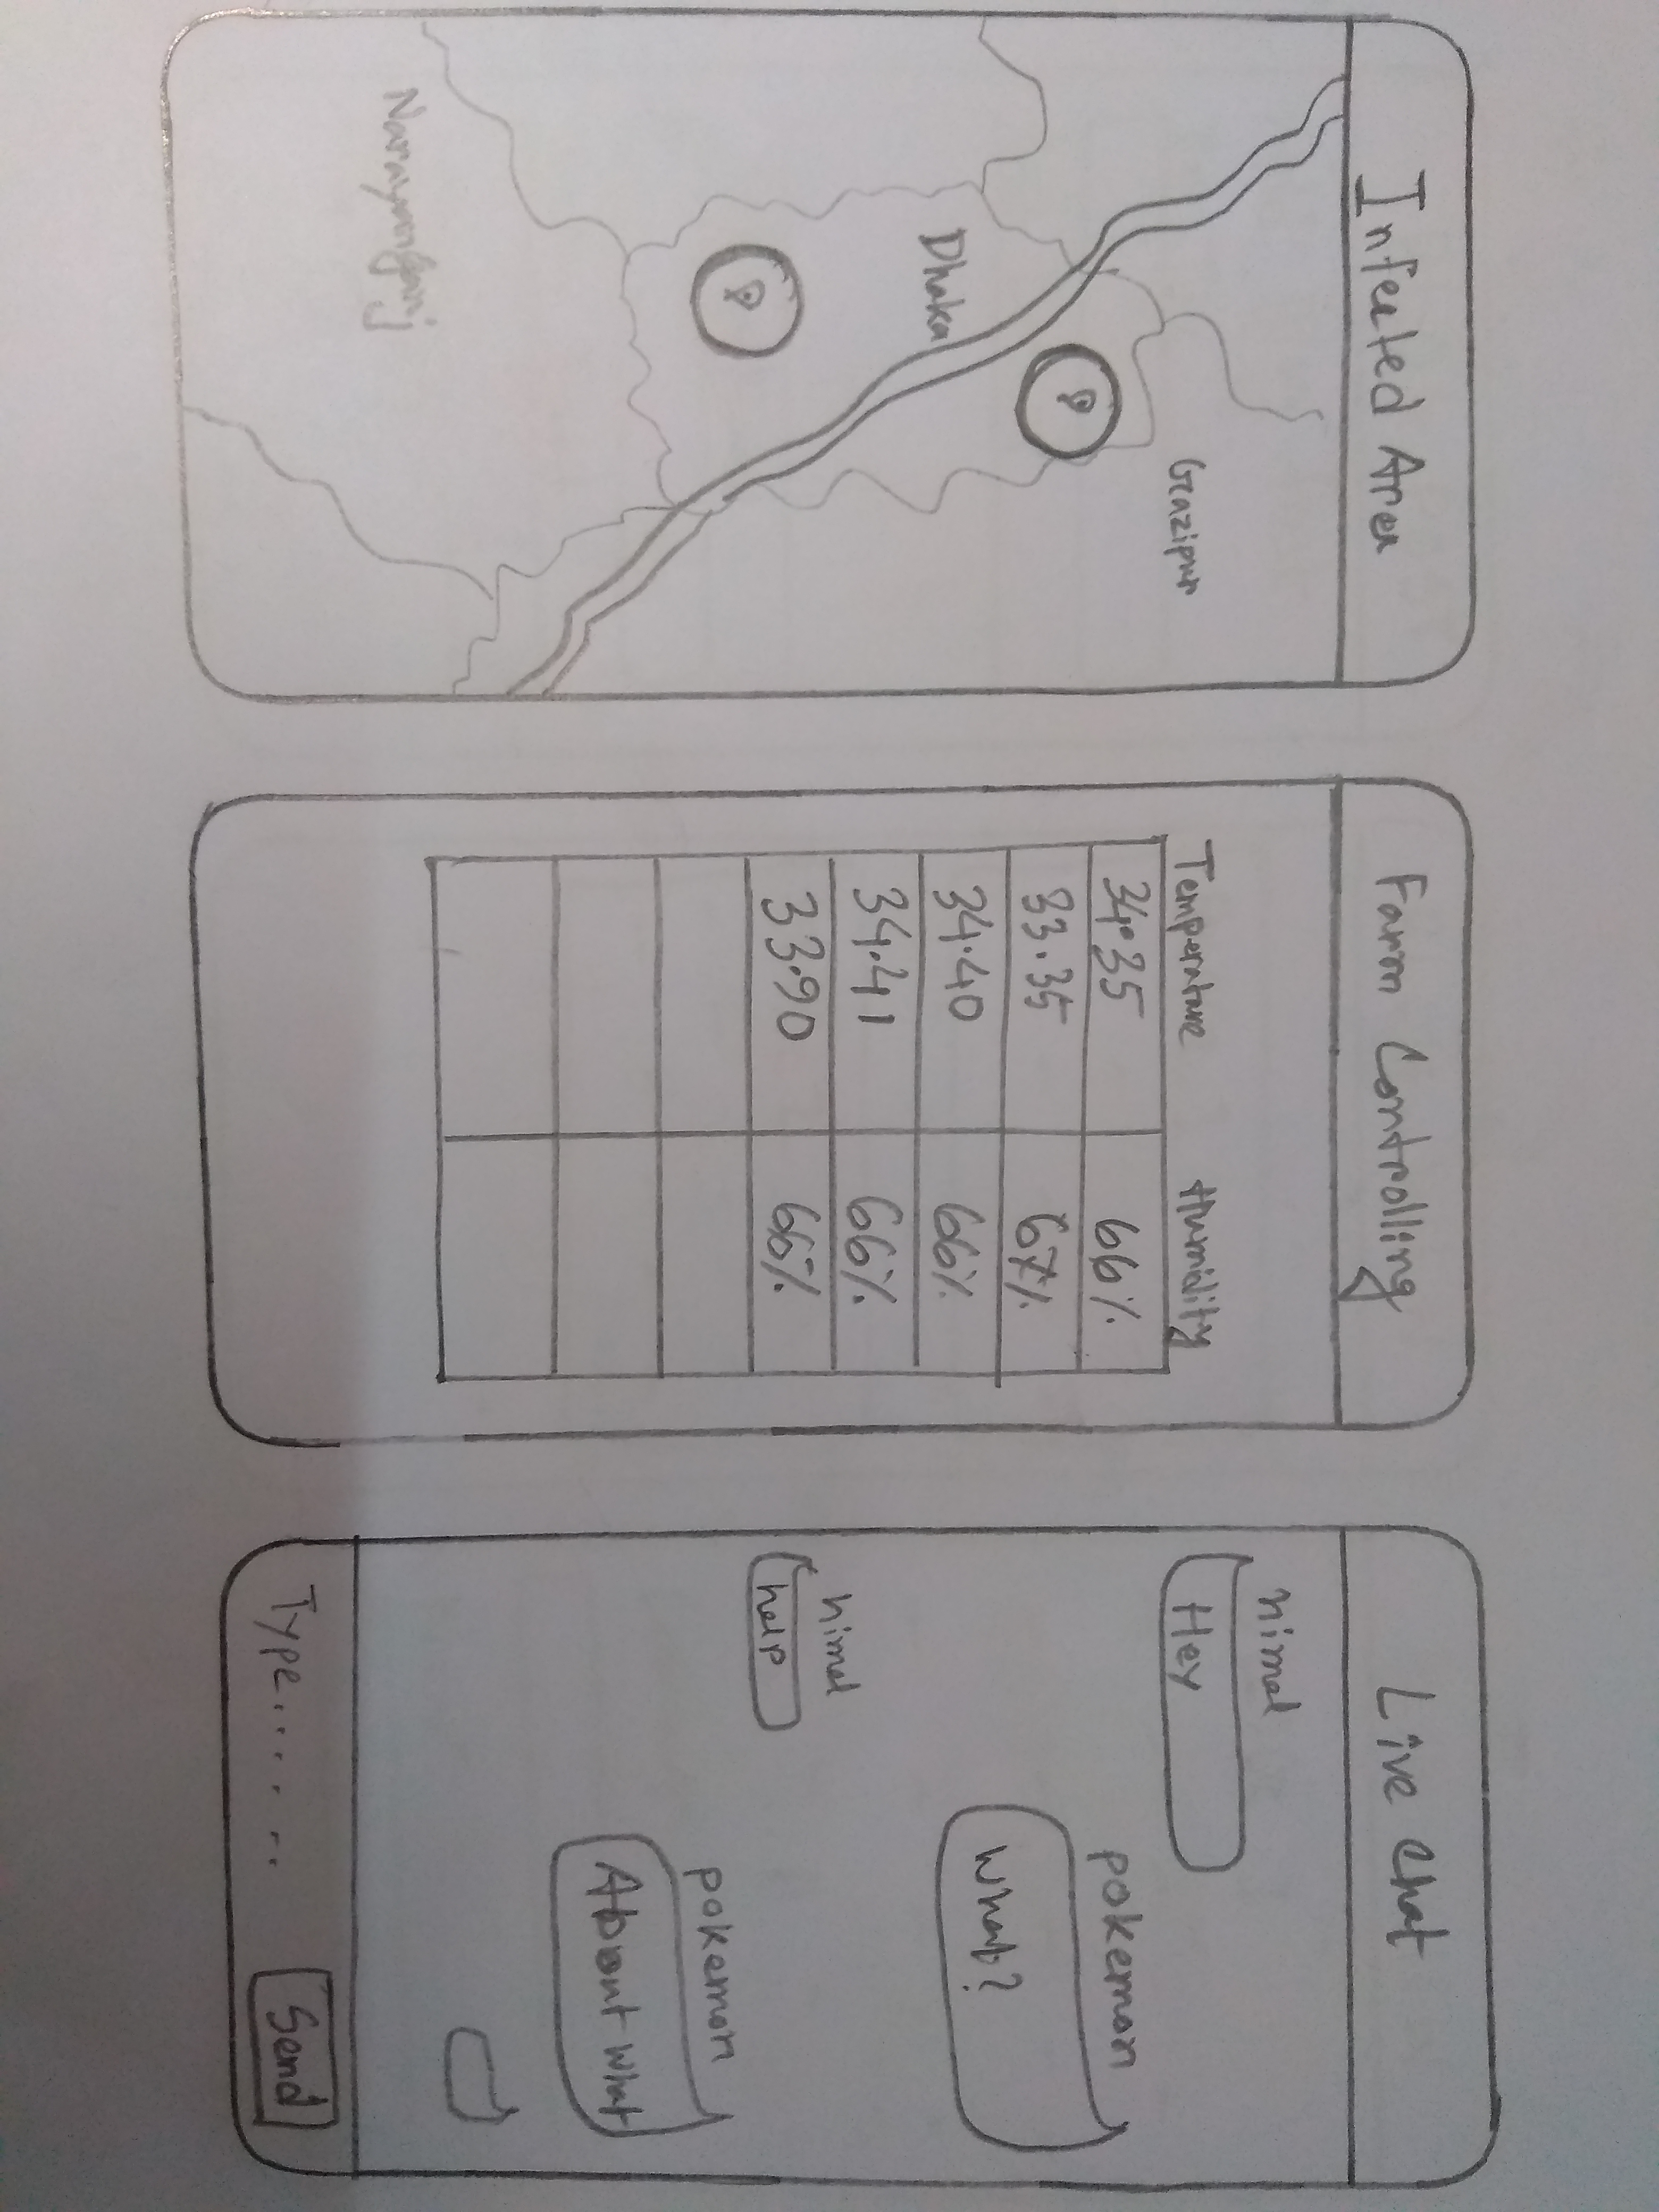 Infected Area
Gazipur
Dhaka
Narayanganj
Farm Controlling
Temperature Humidity
34.35 66%
33.35 67%
34.40 66%
34.41 66%
33.90 66%
Live Chat
himel
Hey
pokemon
What?
himel
help
pokemon
About What
Type...... Send